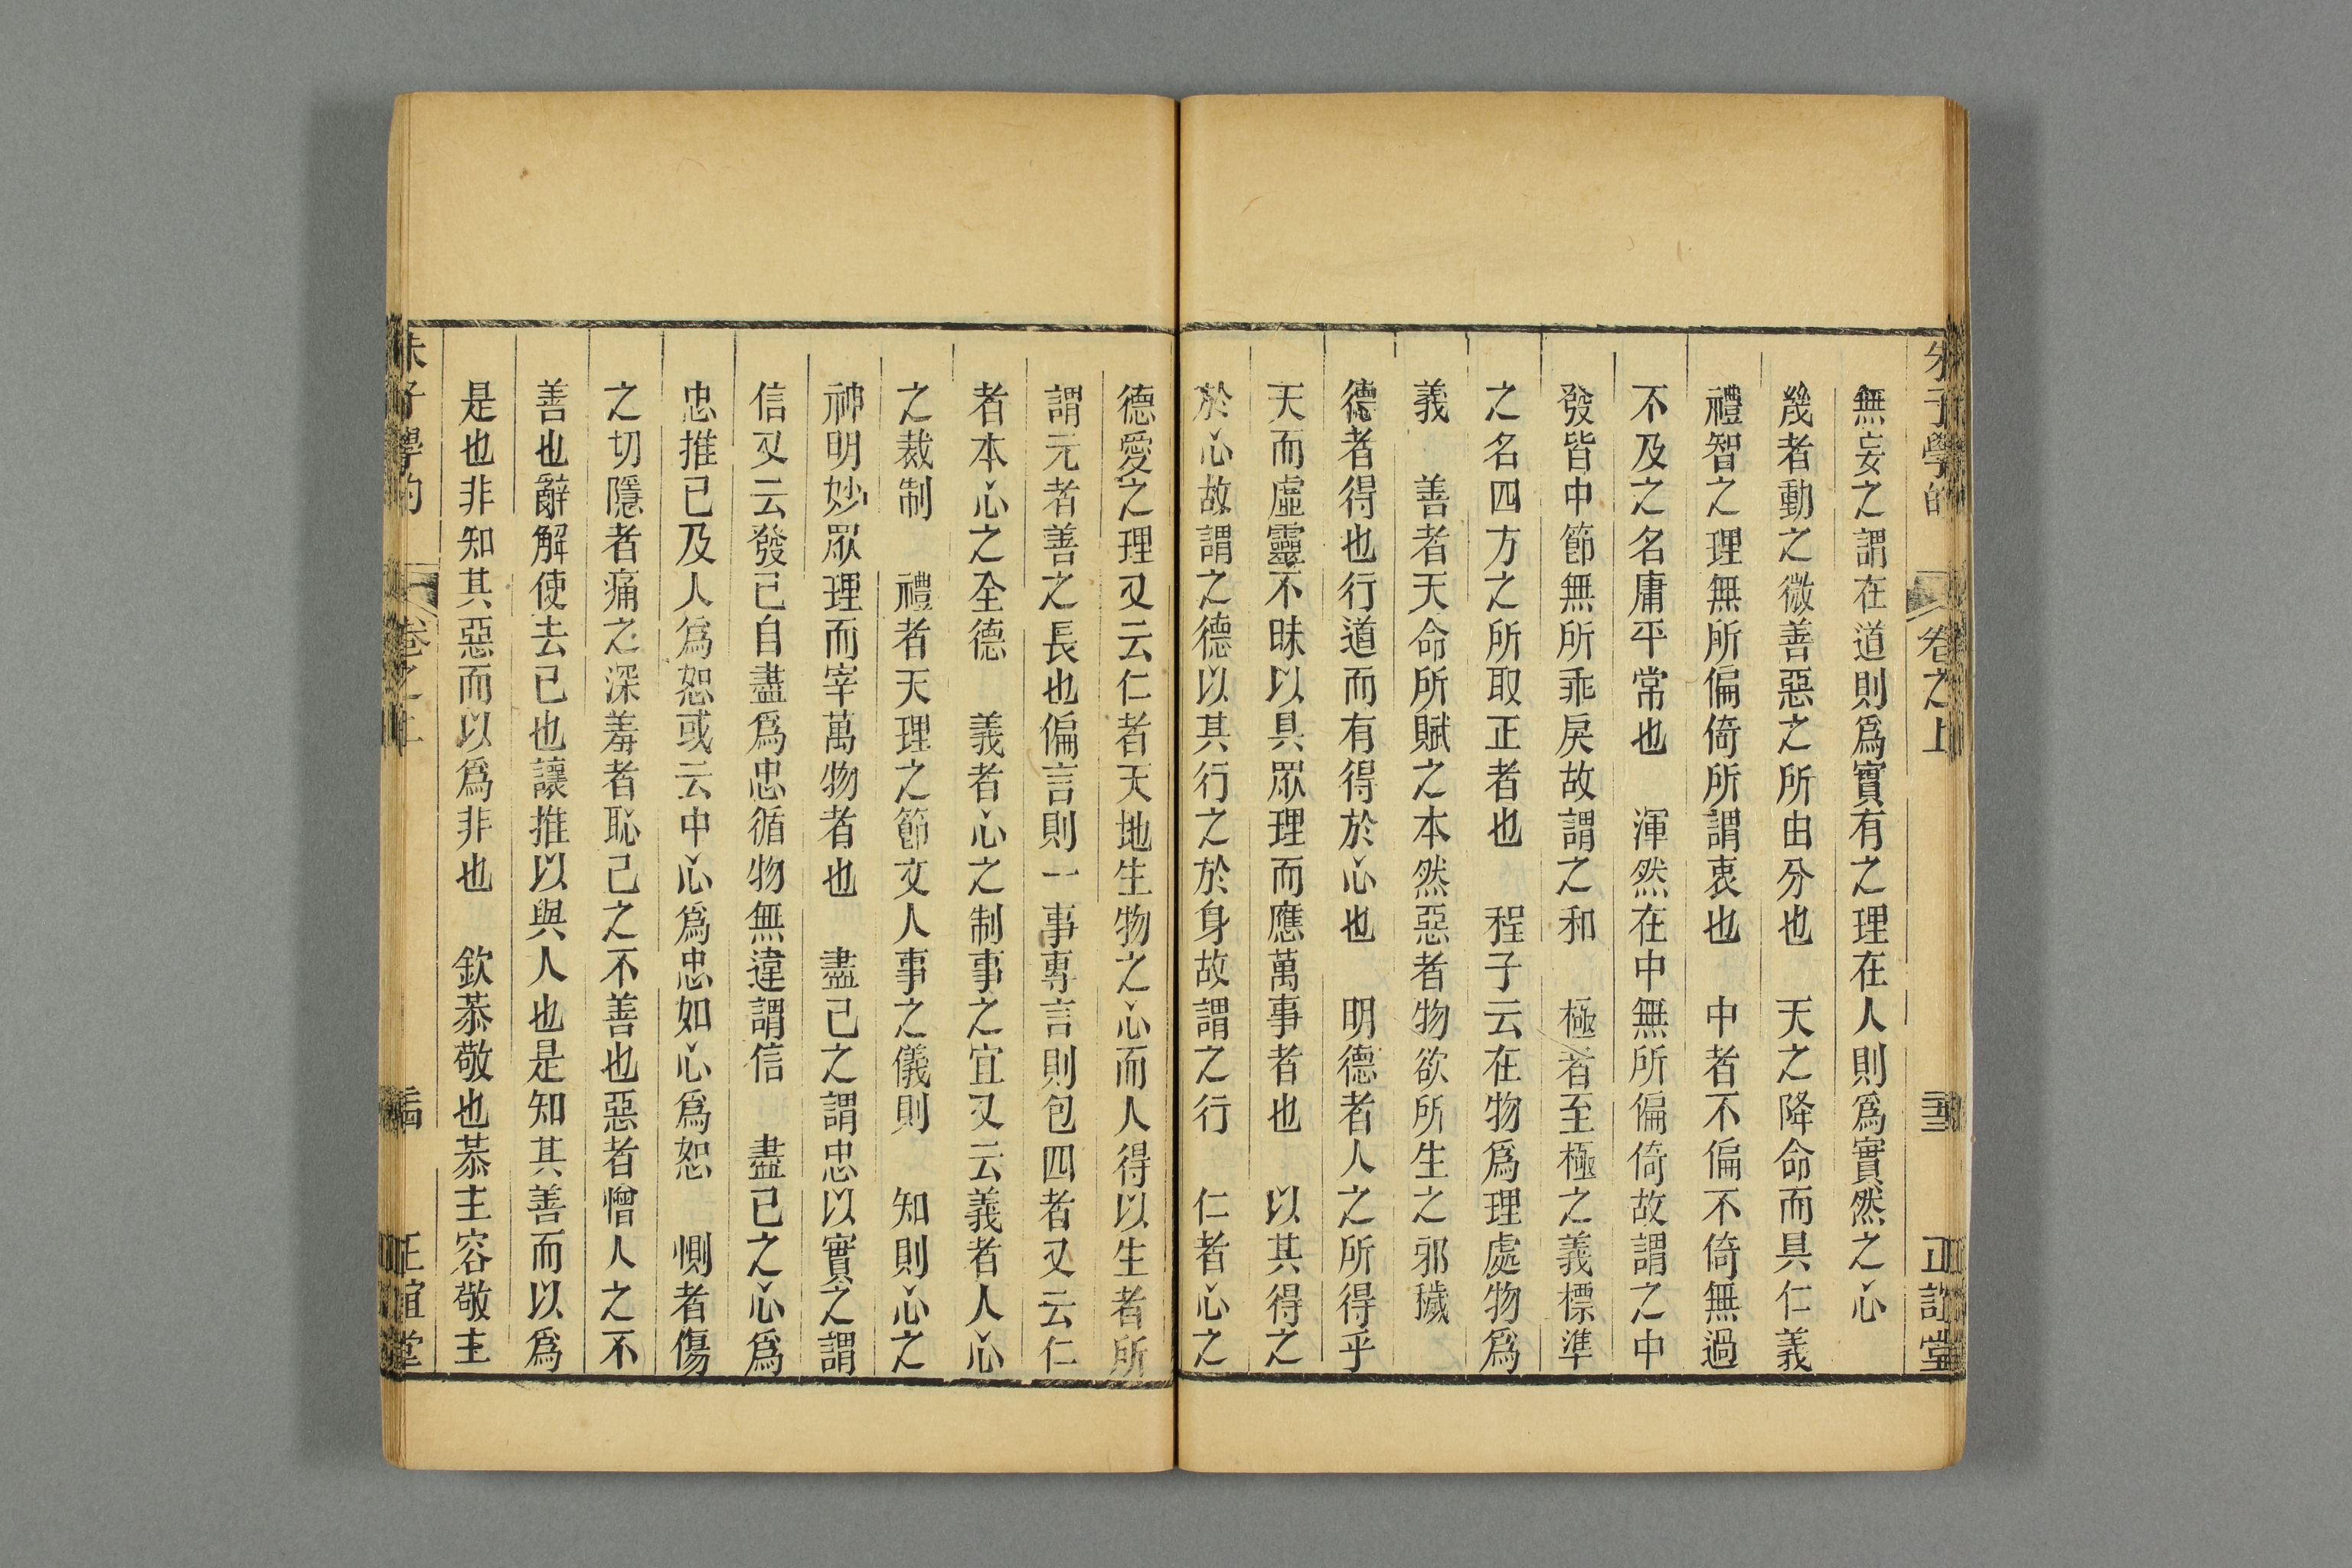 朱子學的 卷之上 正誼堂
無妄之謂在道則爲實有之理在人則爲實然之心
幾者動之微善惡之所由分也 天之降命而具仁義
禮智之理無所偏倚所謂衷也 中者不偏不倚無過
不及之名庸平常也 渾然在中無所偏倚故謂之中
發皆中節無所乖戾故謂之和 極者至極之義標準
之名四方之所取正者也 程子云在物爲理處物爲
義 善者天命所賦之本然惡者物欲所生之邪穢
德者得也行道而有得於心也 明德者人之所得乎
天而虛靈不昧以具眾理而應萬事者也 以其得之
於心故謂之德以其行之於身故謂之行 仁者心之
德愛之理又云仁者天地生物之心而人得以生者所
謂元者善之長也偏言則一事專言則包四者又云仁
者本心之全德 義者心之制事之宜又云義者人心
之裁制 禮者天理之節文人事之儀則 知則心之
神明妙眾理而宰萬物者也 盡己之謂忠以實之謂
信又云發己自盡爲忠循物無違謂信 盡已之心爲
忠推已及人爲恕或云中心爲忠如心爲恕 惻者傷
之切隱者痛之深羞者恥己之不善也惡者憎人之不
善也辭解使去已也讓推以與人也是知其善而以爲
是也非知其惡而以爲非也 欽恭敬也恭主容敬主
朱子學的 卷之上 正誼堂